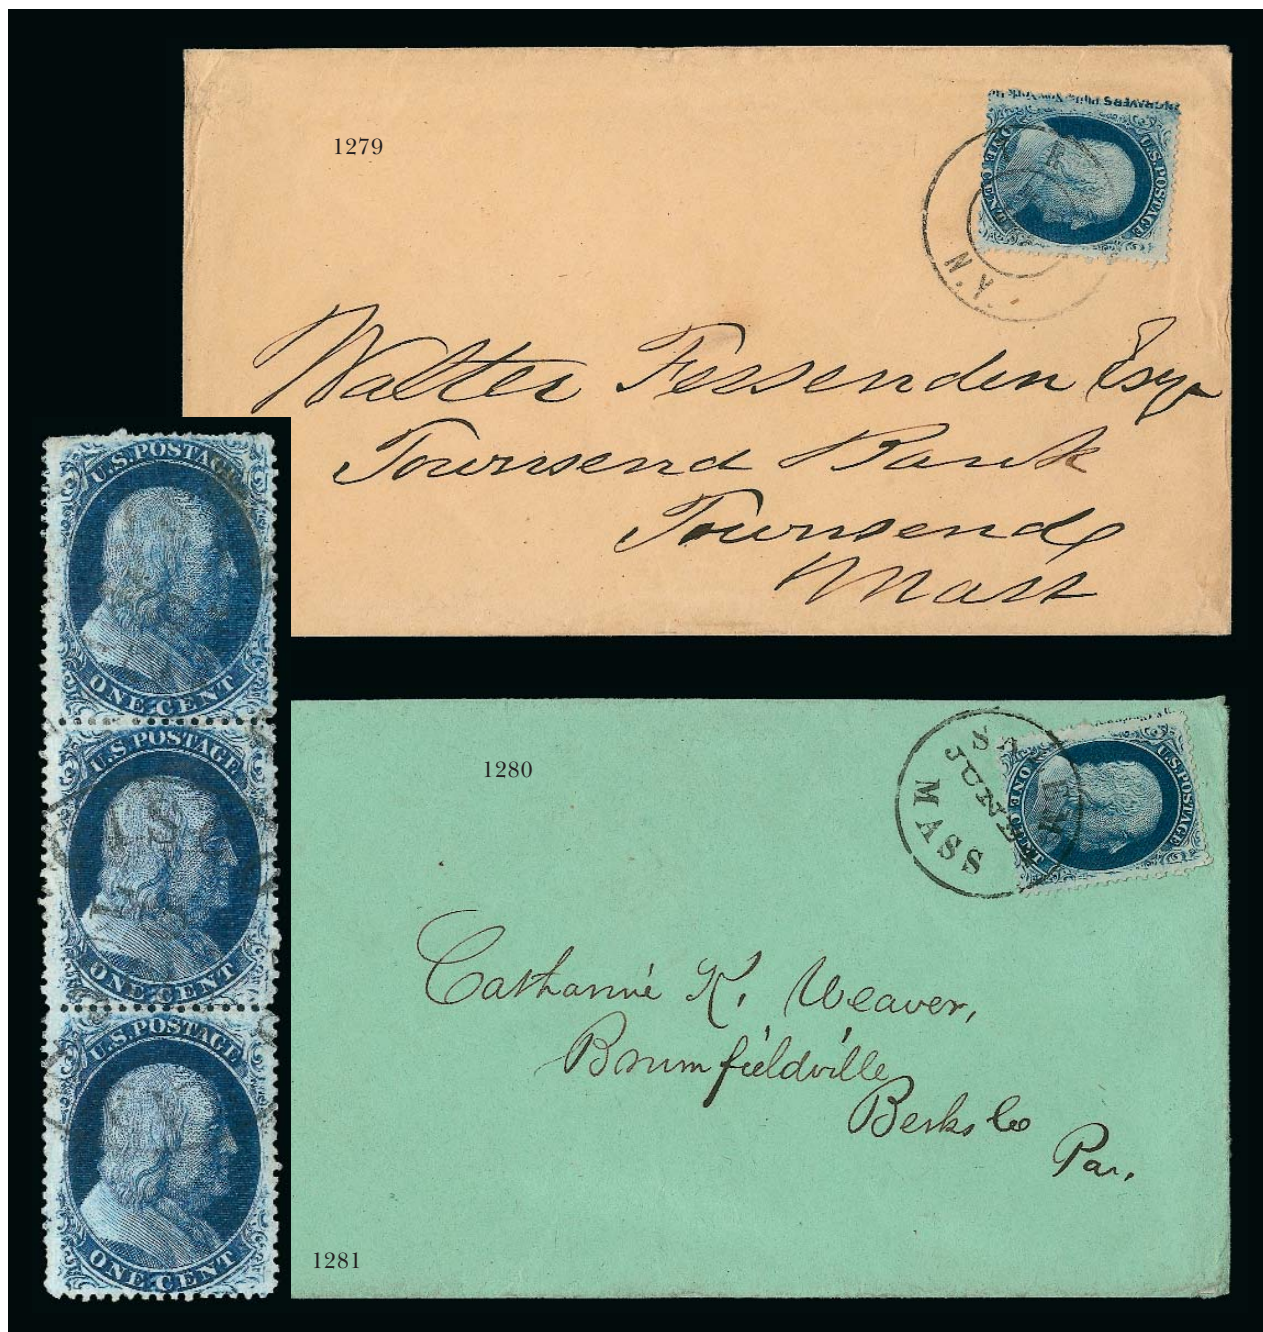 1279
ENGRAVERS Phila. New York
U.S. POSTAGE
ONE CENT
N.Y.
Walter Fessenden Esq
Townsend Bank
Townsend
Mass
U.S. POSTAGE
ONE CENT
U.S. POSTAGE
ONE CENT
U.S. POSTAGE
ONE CENT
1280
JUNE
MASS
U.S. POSTAGE
ONE CENT
Catharine K. Weaver,
Brumfieldville
Berks Co
Pa.
1281